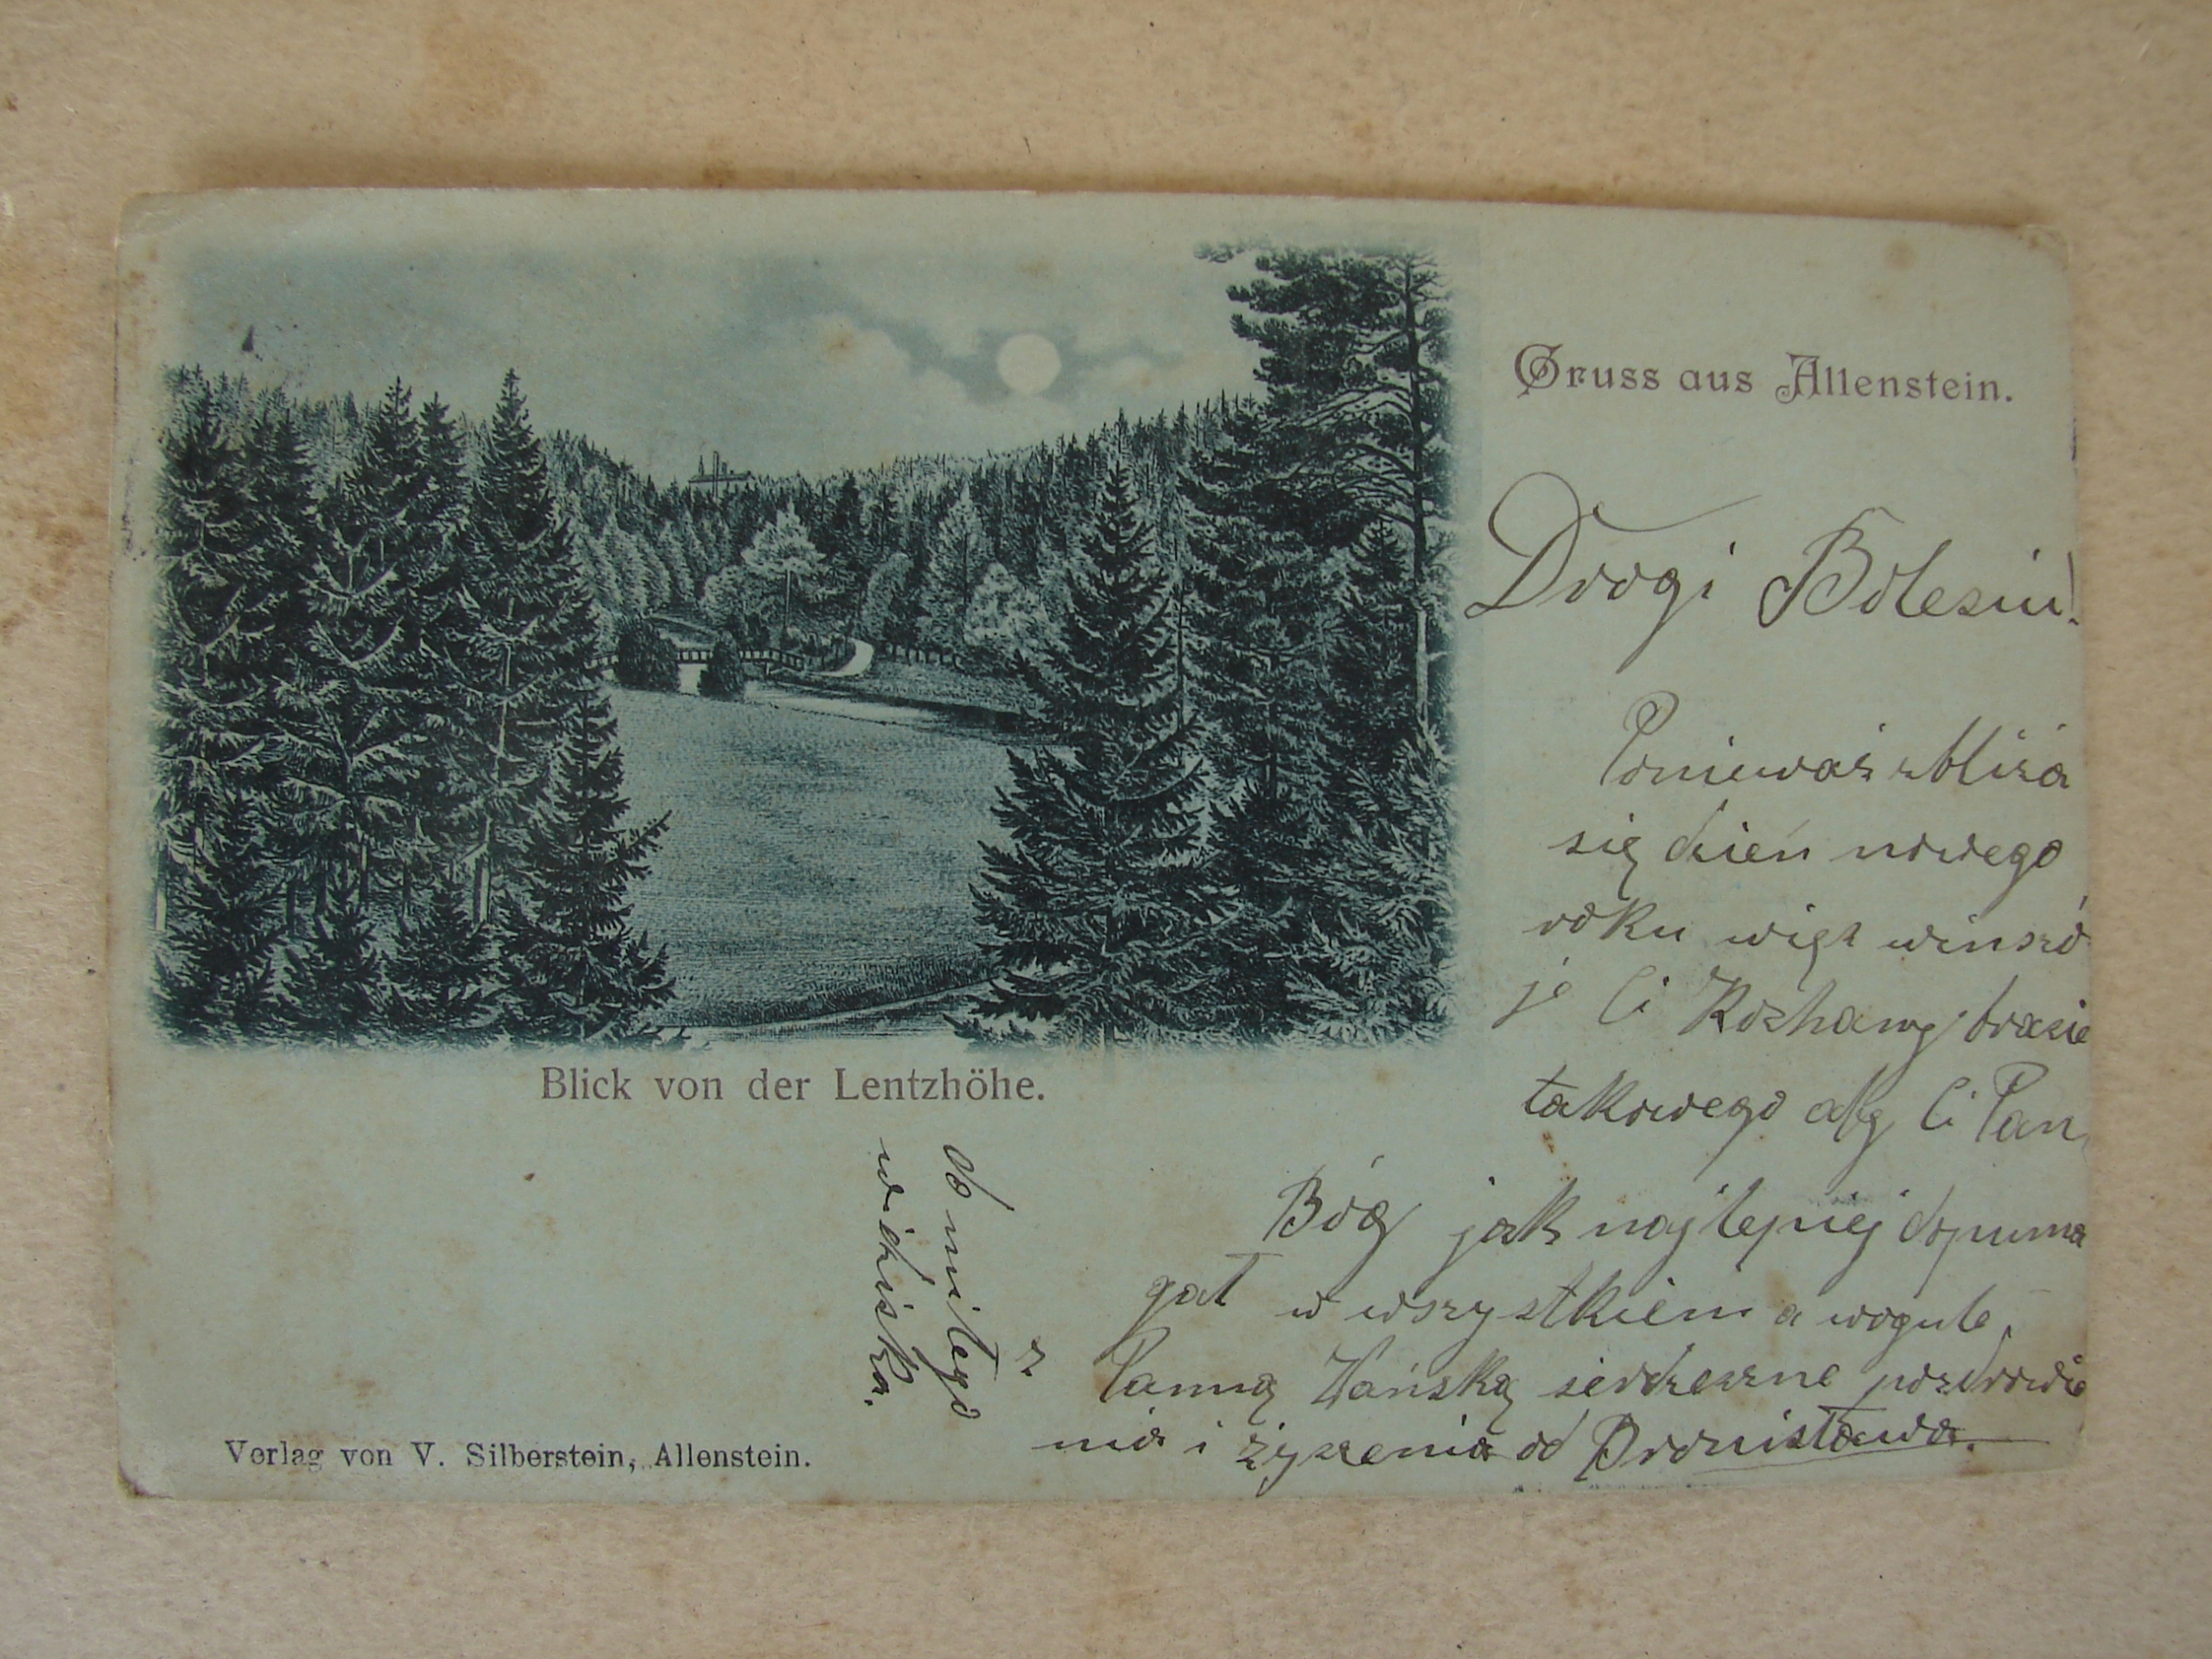 Gruss aus Allenstein.
Drogi Bolesiu!
Ponieważ zbliża
się dzień nowego
roku więc winszó
je Ci Kochany bracie
takowego aby Ci Pan
Bóg jak najlepiej dopuma
gał w wszystkiem a wogule,
Panną Wańską serdeczne pozdrowie
nia i życzenia od Bronisława.
Blick von der Lentzhöhe.
Do miłego
widziska.
Verlag von V. Silberstein, Allenstein.